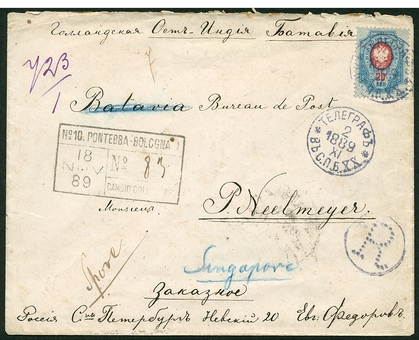 Голландская Остъ-Индія Батавія
20
У23
1
Batavia Bureau de Post
ТЕЛЕГРАФЪ
2
XI
1889
ВЪ С.П.Б. XX
№10. PONTEBBA-BOLOGNA
18
NOV
89
№ 83
Monsieur
P. Neelmeyer
Singapore
Spore
Заказное
Россія С. Петербургъ Невскій 20 Евг. Федоровъ